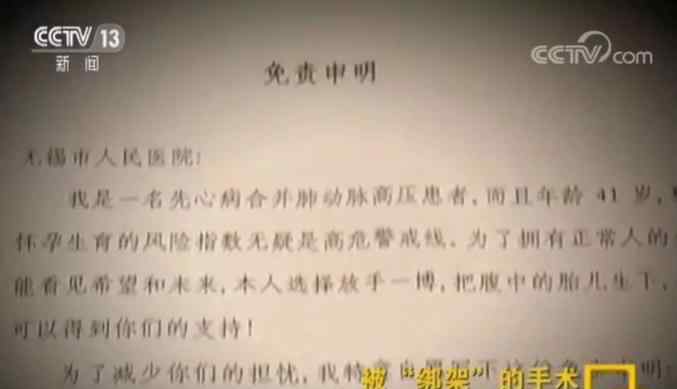 CCTV 13
新闻
CCTV com
免责申明
无锡市人民医院:
我是一名先心病合并肺动脉高压患者,而且年龄 41 岁,
怀孕生育的风险指数无疑是高危警戒线。为了拥有正常人的
能看见希望和未来,本人选择放手一博,把腹中的胎儿生下,
可以得到你们的支持!
为了减少你们的担忧,我特意自愿写下这份免责申明:
被“绑架”的手术